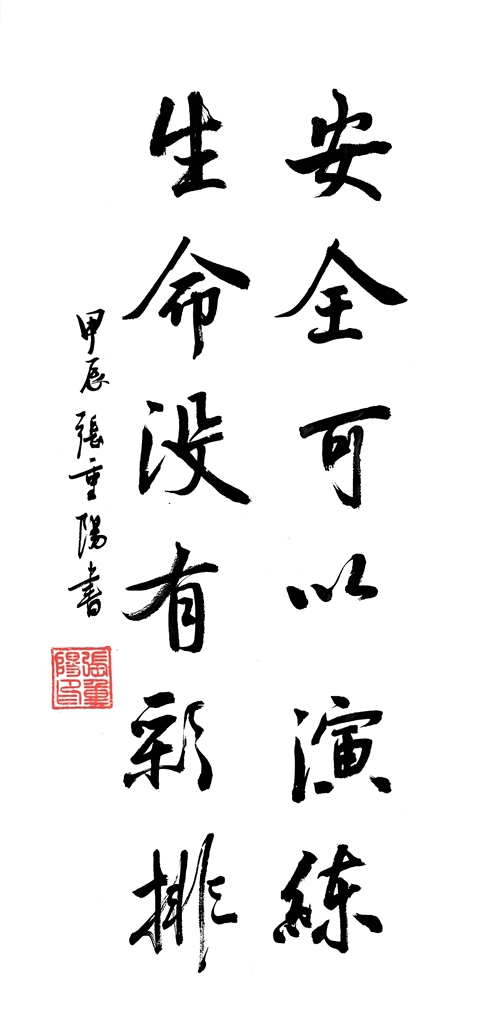 安全可以演練
生命没有彩排
甲辰張重陽書
張重陽印